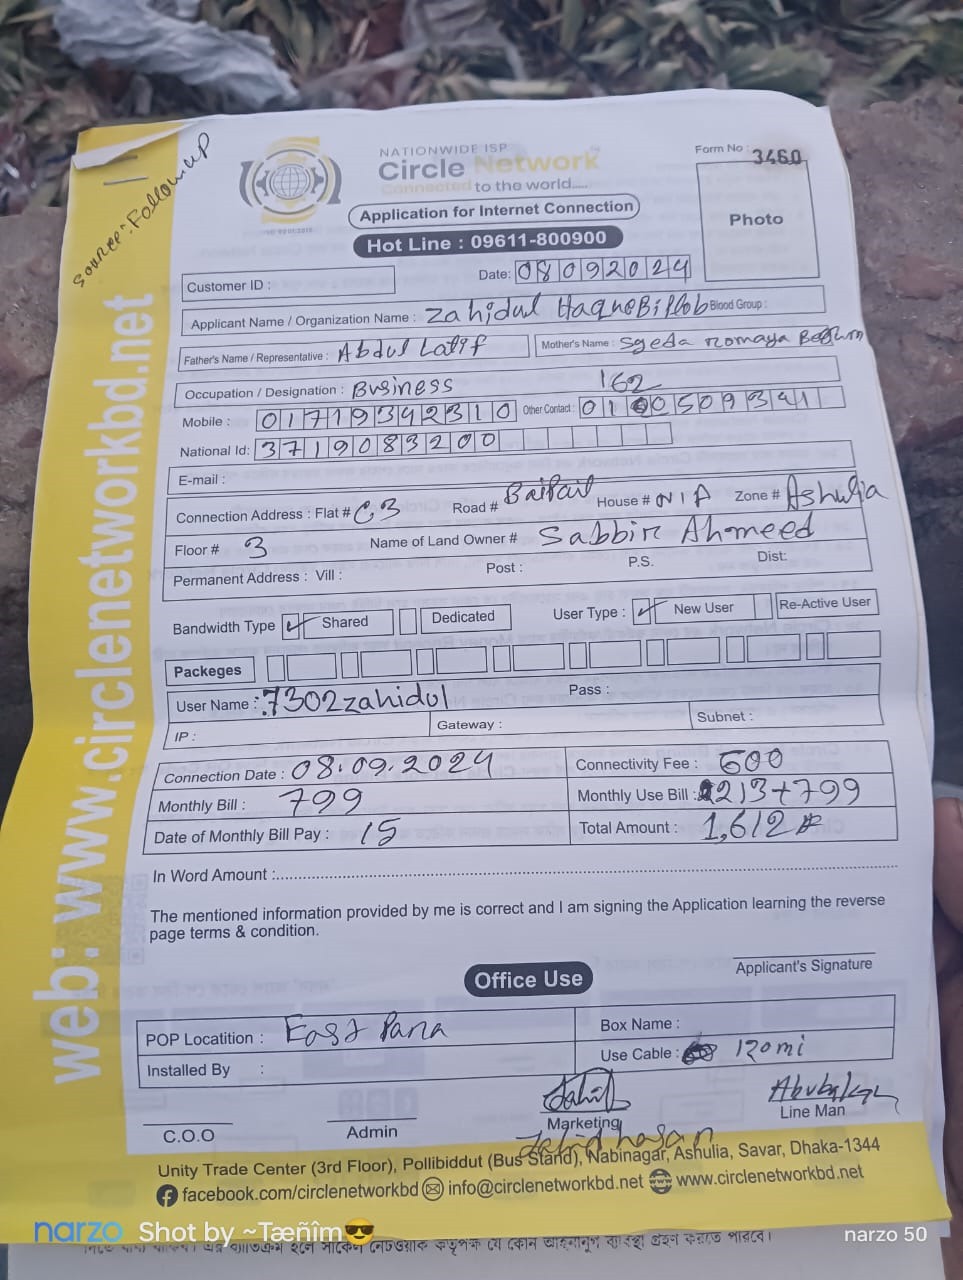 Source: Followup
NATIONWIDE ISP
Circle Network
Connected to the world.....
Form No : 3460
Application for Internet Connection
Hot Line : 09611-800900
Photo
Customer ID :
Date: 08092024
Applicant Name / Organization Name : Zahidul Haque Biplob Blood Group :
Father's Name / Representative : Abdul Latif Mother's Name : Syeda Romaya Begum
Occupation / Designation : Business
162
Mobile : 01719342310 Other Contact : 01 0509341
National Id: 3719083200
E-mail :
Connection Address : Flat # C3 Road # Baipail House # N/A Zone # Ashulia
Floor # 3 Name of Land Owner # Sabbir Ahmeed
Permanent Address : Vill : Post : P.S. Dist:
Bandwidth Type ✓ Shared Dedicated User Type : ✓ New User Re-Active User
Packeges
User Name : 7302zahidul Pass :
IP : Gateway : Subnet :
Connection Date : 08.09.2024 Connectivity Fee : 600
Monthly Bill : 799 Monthly Use Bill : 213+799
Date of Monthly Bill Pay : 15 Total Amount : 1,612
In Word Amount :
The mentioned information provided by me is correct and I am signing the Application learning the reverse
page terms & condition.
Applicant's Signature
Office Use
POP Locatition : East Para Box Name :
Installed By : Use Cable : 120mi
C.O.O Admin Marketing Line Man
Zahid hasan
Abubakar
Unity Trade Center (3rd Floor), Pollibiddut (Bus Stand), Nabinagar, Ashulia, Savar, Dhaka-1344
facebook.com/circlenetworkbd info@circlenetworkbd.net www.circlenetworkbd.net
web: www.circlenetworkbd.net
narzo Shot by ~Tæñîm😎 narzo 50